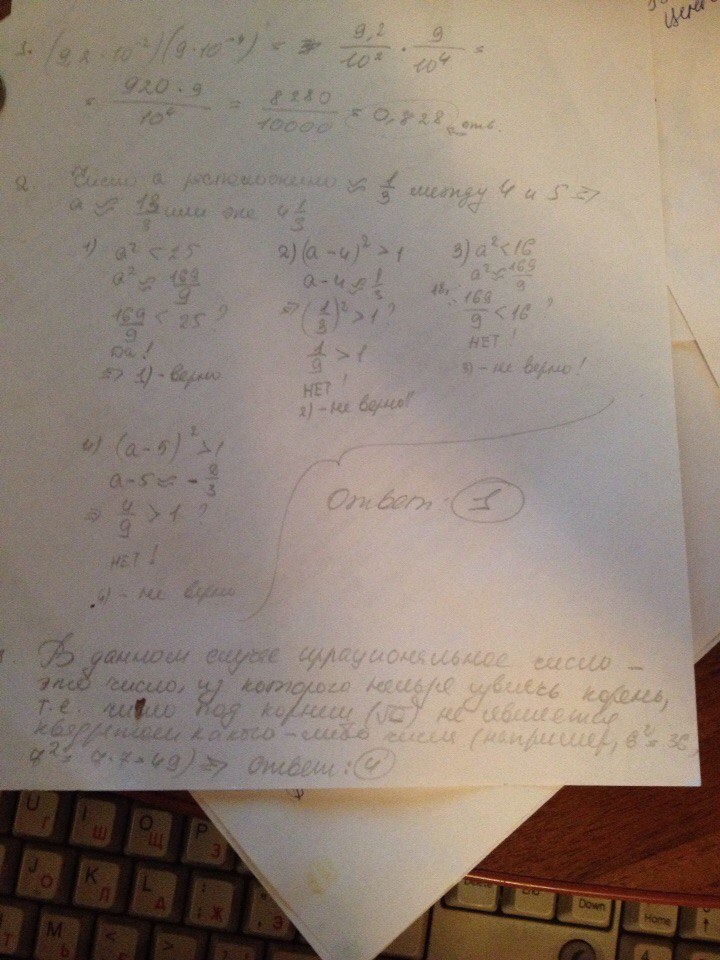 1. (9,2 · 10⁻²)(9 · 10⁻⁴) = 9,2/10² · 9/10⁴ =
= 920 · 9/10⁴ = 8280/10000 = 0,828 отв.
2. Число а расположено ≈ 1/3 между 4 и 5 ⇒
а ≈ 13/3 или же 4 1/3
1) a² < 25
a² ≈ 169/9
169/9 < 25 ?
Да!
⇒ 1) - верно
2) (a - 4)² > 1
a - 4 ≈ 1/3
⇒ (1/3)² > 1 ?
1/9 > 1
НЕТ!
2) - не верно!
3) a² < 16
a² ≈ 169/9
169/9 < 16 ?
НЕТ!
3) - не верно!
4) (a - 5)² > 1
a - 5 ≈ - 2/3
⇒ 4/9 > 1 ?
НЕТ!
4) - не верно
Ответ: 1
В данном случае иррациональное число -
это число, из которого нельзя извлечь корень,
т.е. число под корнем не является
квадратом какого-либо числа (например, 6² = 36,
7² = 7 · 7 = 49) ⇒ Ответ: 4
U Г
I Ш
O Щ
P З
J О
K Л
L Д
: ; Ж
" ' Э
M Ь
<
>
Delete
End
Down
Home